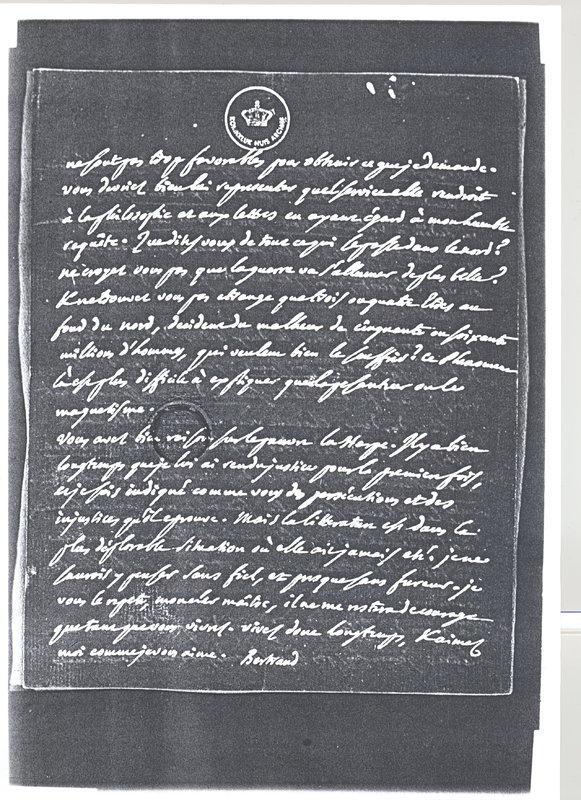 KONINKLIJK HUIS ARCHIEF
ne sont pas trop favorables pour obtenir ce que je demande.
vous devriez bien lui representer quel service elle rendroit
à la philosophie et aux lettres en ayant égard à mon humble
requête. Que dites vous de tout ce qui se passe dans le nord?
ne croyez vous pas que la guerre va s'allumer de plus belle?
& ne trouvez vous pas etrange que trois ou quatre têtes au
fond du nord, decident du malheur de cinquante ou soixante
millions d'hommes, qui veulent bien le souffrir? ce phenomene
là est plus difficile à expliquer que la pesanteur ou le
magnetisme.
vous avez bien raison sur le pauvre la Harpe. Il y a bien
longtemps que je lui ai rendu justice pour la premiere fois,
et je suis indigné comme vous des persecutions et des
injustices qu'il eprouve. Mais la litterature est dans la
plus deplorable situation où elle ait jamais eté: je ne
saurois y penser sans fiel, et presque sans fureur. je
vous le repete, mon cher maître, il ne me restera de courage
que tant que vous vivrez. vivez donc longtemps, & aimez
moi comme je vous aime. Bertrand